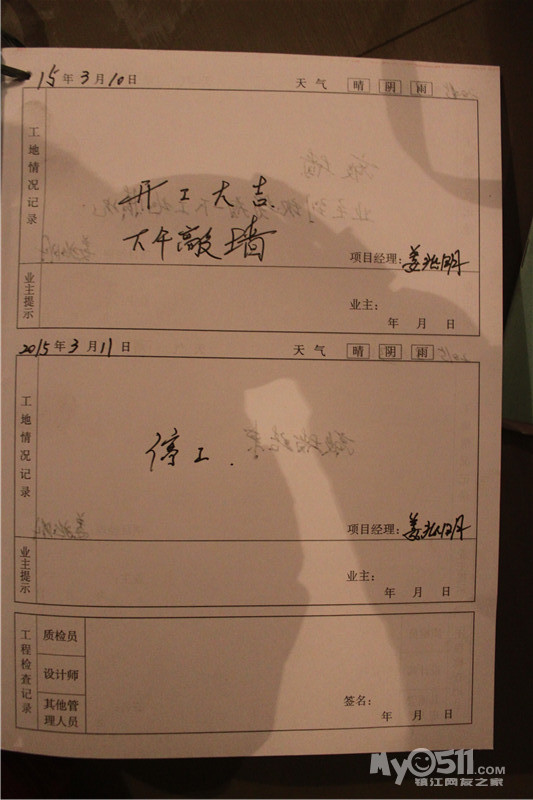 15年3月10日 天气 晴 阴 雨
工地情况记录
开工大吉.
下午敲墙
项目经理:
业主提示
业主:
年 月 日
2015年3月11日 天气 晴 阴 雨
工地情况记录
停工.
项目经理:
业主提示
业主:
年 月 日
工程检查记录
质检员
设计师
其他管理人员
签名:
年 月 日
My0511.COM
镇江网友之家